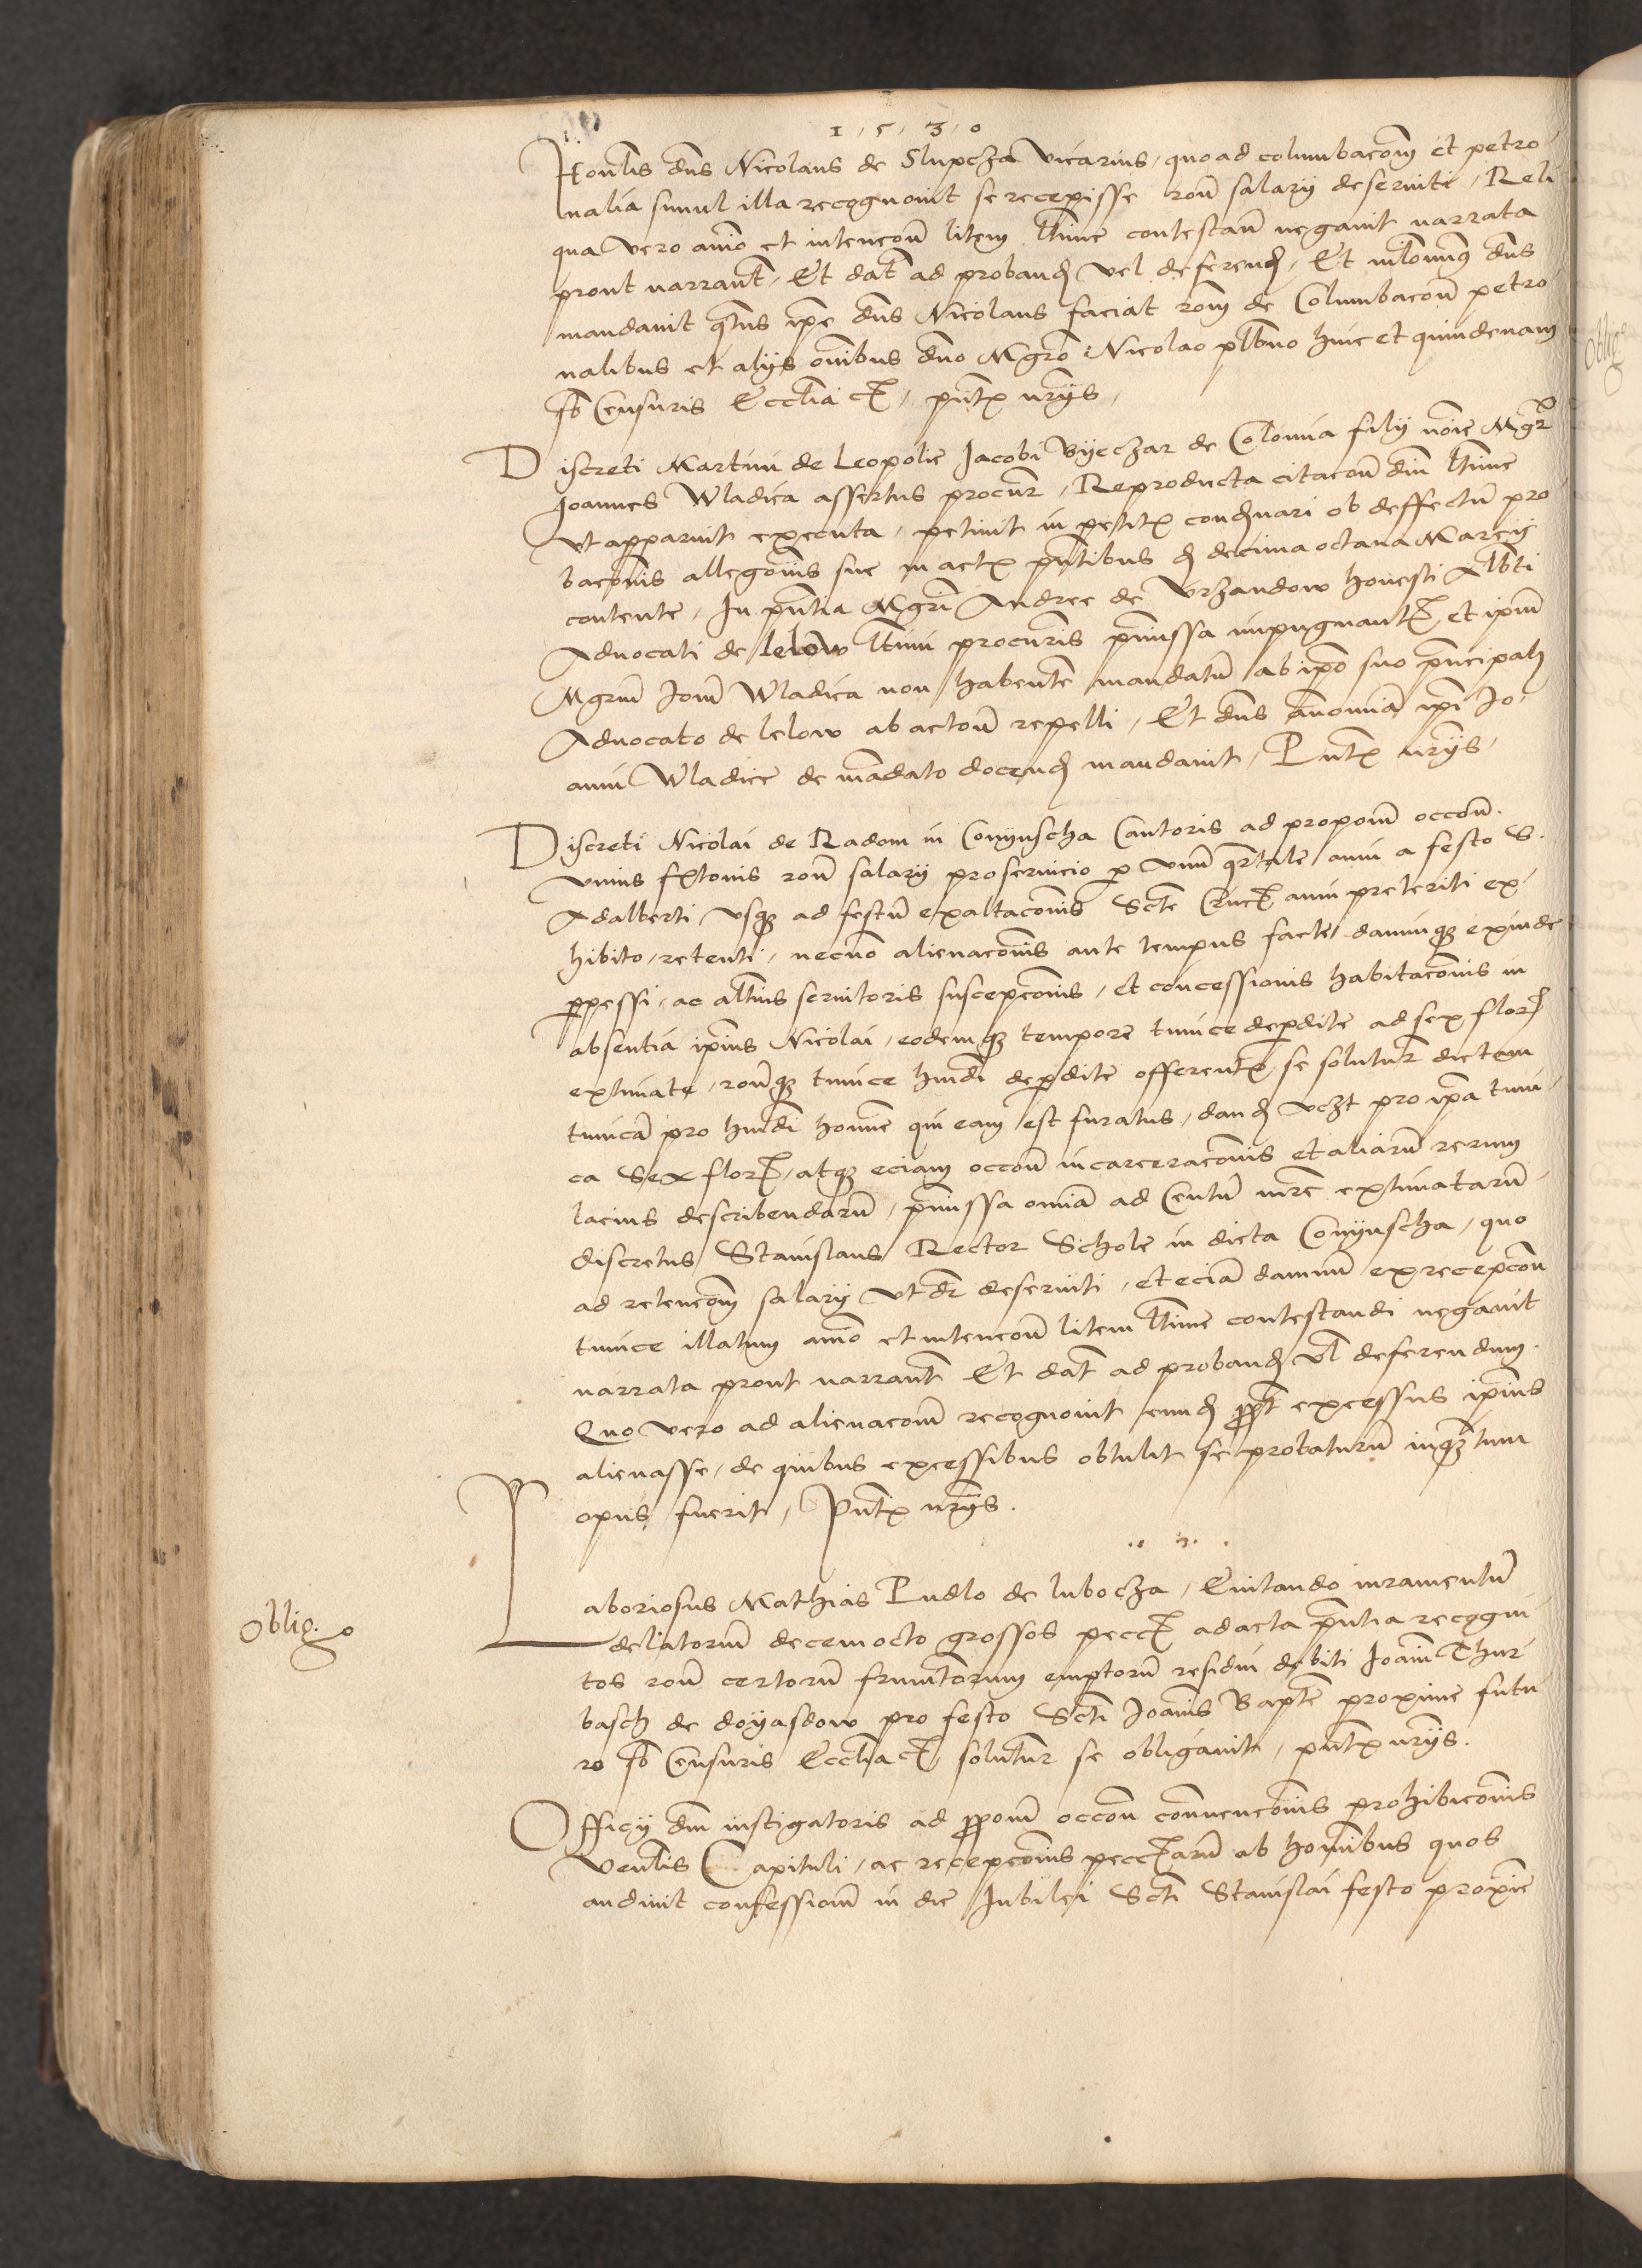 1530
Honlis dns Nicolaus de Slupcza vicarius, quoad columbacom et petro
nalia simul illa recognovit se recepisse ron salarij deserviti, Reli
qua vero animo et intencon litem ltime contestan negavit narrata
prout narrant, Et dat ad proband vel deferend, Et nlominus dns
mandavit qtus ipe dns Nicolaus faciat rom de Columbacon petro
nalibus et alijs omnibus dno Mgro Nicolao plbno hinc et quindenam
sb Censuris Ecclia ct, pntx nrijs,
Discreti Martini de Leopolie Jacobi Byeczar de Colonia filij noie Mgr
Joannes Wladica assertus procur, Reproducta citacon din ltime
vt apparuit executa, petivit in petitx condnari ob deffectu pro
bacomis allegonis sue in actx pntibus d decima octava Marcij
contente, In pntia Mgri Andree de Vrzandow honesti Albti
Advocati de lelow ltimi procuris pmissa impugnant, et ipm
Mgrum Joem Wladica non habente mandatu ab ipo suo principali
Advocato de lelow ab acton repelli, Et dns annomia ipi Jo
anni Wladice de madato docend mandavit, Pntx nrijs,
Discreti Nicolai de Radom in Conijnscha Cantoris ad propom occon
vnius sxtonis ron salarij pro servicio p vnu qrtale anni a festo S.
Adalberti vsq ad festu exaltaconis Scte Cruc anni preteriti ex
hibito, retenti, necno alienaconis ante tempus facte damniq exinde
ppessi, ac altius servitoris suscepconis, et concessionis habitaconis in
absentia ipius Nicolai, eodemq tempore tunice deperdite ad sex flor
extimate, ronq tunice hmdi deperdite offerentx se solutur dictam
tunica pro hmdi homine qui eam est furatus, dand vczt pro ipa tuni
ca Sex flor, atq eciam occon incarceraconis et aliaru rerum
lacius describendaru, pmissa omia ad Centu mrc extimataru
discretus Stanislaus Rector Schole in dicta Conijnscha, quo
ad retencom salarij vt dr deserviti, et ecia damnu ex recepcon
tunice illatum animo et intencon litem ltime contestandi negavit
narrata prout narrant Et dat ad proband vl deferendum.
Quo vero ad alienacom recognovit eund ppt excessus ipius
alienasse, de quibus excessibus obtulit se probaturu inqtum
opus fuerit, Pntx nrijs.
Laboriosus Mathias Pudlo de lubocza, Evitando iuramentu
delatorium decemocto grossos pecc ad acta pntia recogni
tos ron certoru frumtorum emptoru residui debiti Joanni Thur
basch de doyasdow pro festo Scti Joanis Bapte proxime futu
ro sb Censuris Ecclia ct, solutur se obligavit, pntx nrijs.
Oblig.o
Officij dni instigatoris ad ppom occon convenconis prohibiconis
Venlis Capituli, ac recepconis pecciaru ab hominibus quos
audivit confessiom in die Jubilei Scti Stanislai festo proxie